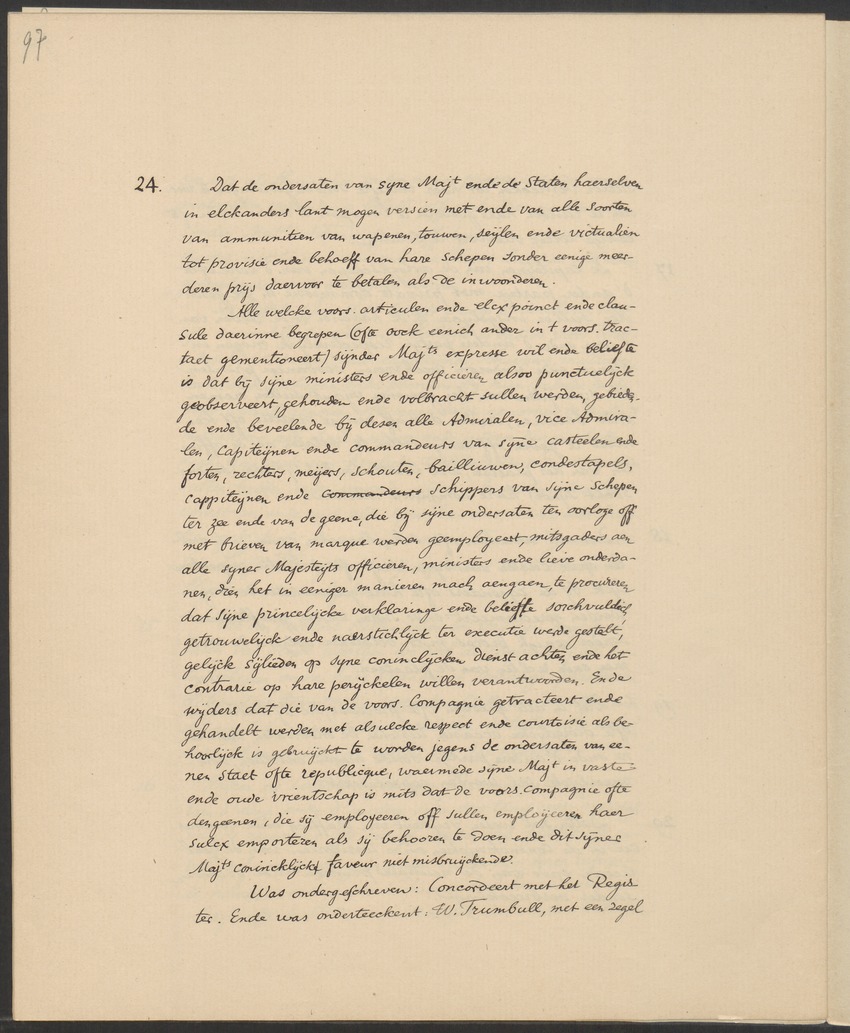 97
24. Dat de ondersaten van syne Majt ende de Staten haerselven
in elckanders lant mogen versien met ende van alle soorten
van ammunitien van wapenen, touwen, seijlen ende victualien
tot provisie ende behoeff van hare Schepen sonder eenige meer-
deren prijs daervoor te betalen als de inwoonderen.
Alle welcke voors. articulen ende elcx poinct ende clau-
sule daerinne begrepen (ofte oock eenich ander in 't voors. trac-
taet gementioneert) sijnder Majts expresse wil ende beliefte
is dat bij sijne ministers ende officieren alsoo punctuelijck
geobserveert, gehouden ende volbracht sullen werden, gebieden-
de ende beveelende bij desen alle Admiralen, vice Admira-
len, Capiteijnen ende commandeurs van sijne casteelen ende
forten, rechters, meijers, schouten, bailliuwen, condestapels,
cappiteijnen ende commandeurs schippers van sijne schepen
ter zee ende van de geene, die bij sijne ondersaten ten oorloge off
met brieven van marque werden geemployeert, mitsgaders aen
alle syner Majesteijts officieren, ministers ende lieve onderda-
nen, dien het in eeniger manieren mach aengaen, te procureren
dat sijne princelijcke verklaringe ende belieffte sorchvuldich
getrouwelijck ende naerstichlijck ter executie werde gestelt,
gelijck sijlieden op syne coninclijcken dienst achten ende het
contrarie op hare perijckelen willen verantwoorden. Ende
wijders dat die van de voors. Compagnie getracteert ende
gehandelt werden met alsulcke respect ende courtoisie als be-
hoorlijck is gebruijckt te worden jegens de ondersaten van ee-
nen staet ofte republicque, waermede sijne Majt in vaste
ende oude vrientschap is mits dat de voors. Compagnie ofte
dengeenen, die sij employeeren off sullen employeren haer
sulcx emporteren als sij behooren te doen ende dit sijner
Majts conincklijck faveur niet misbruijckende.
Was ondergeschreven: Concordeert met het Regis
ter. Ende was onderteeckent: W. Trumbull, met een zegel